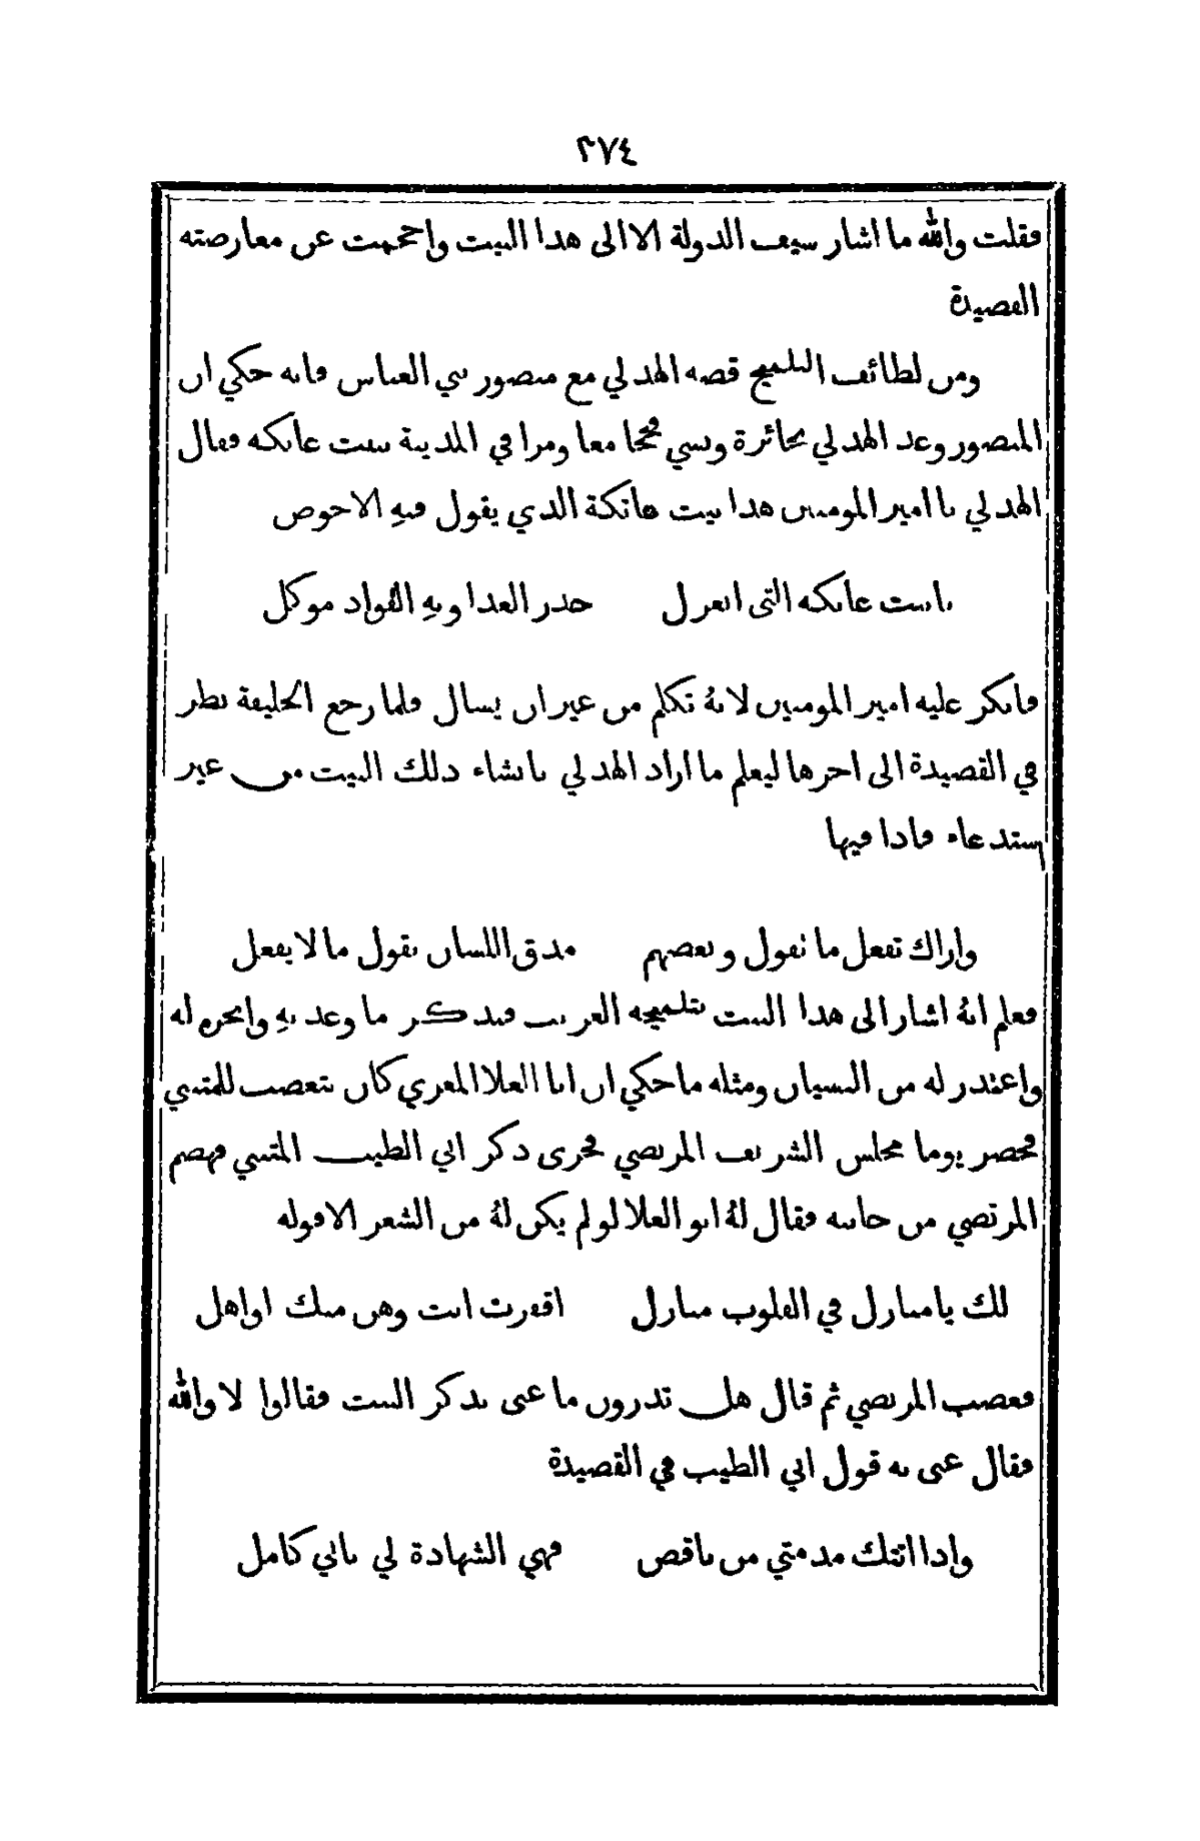 ٢٧٤
فقلت والله ما اشار سيف الدولة الا الى هذا البيت واحجمت عن معارضته
القصيدة
ومن لطائف التلميح قصه الهذلي مع منصور بني العباس فانه حكي ان
المنصور وعد الهذلي بجائزة ونسي فحجا معا ومرا في المدينة ببيت عاتكه فقال
الهذلي يا امير المومنين هذا بيت عاتكة الذي يقول فيهِ الاحوص
يا بيت عاتكه التي اتعزل حذر العدا وبهِ الفواد موكل
فانكر عليه امير المومنين لانهُ تكلم من غير ان يسال فلما رجع الخليفة نظر
في القصيدة الى اخرها ليعلم ما اراد الهذلي بانشاء ذلك البيت من غير
استدعاء فاذا فيها
واراك تفعل ما تقول وبعضهم مذق اللسان يقول ما لا يفعل
فعلم انهُ اشار الى هذا البيت بتلميحه الغريب فتذكر ما وعده بهِ وانجزه له
واعتذر له من النسيان ومثله ما حكي ان ابا العلا المعري كان يتعصب للمتنبي
فحضر يوما مجلس الشريف المرتضي فجرى ذكر ابي الطيب المتنبي فهضم
المرتضي من جانبه فقال لهُ ابو العلا لو لم يكن لهُ من الشعر الا قوله
لك يا منازل في القلوب منازل اقفرت انت وهن منك اواهل
فغضب المرتضي ثم قال هل تدرون ما عنى بذكر البيت فقالوا لا والله
فقال عنى به قول ابي الطيب في القصيدة
واذا اتتك مذمتي من ناقص فهي الشهادة لي باني كامل